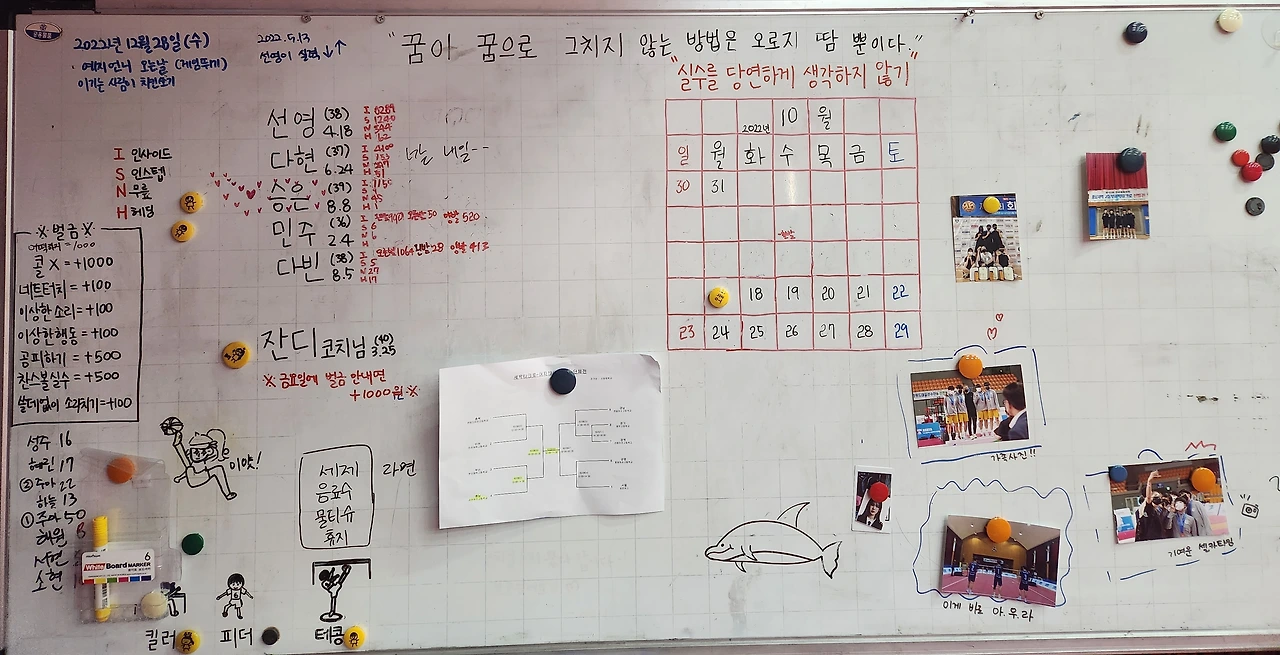 2022년 12월 28일 (수)
· 예지언니 오는날 (게임뛰기)
이기는 사람이 치킨쏘기
2022. 5. 13
선영이 실력 ↓↑
"꿈이 꿈으로 그치지 않는 방법은 오로지 땀 뿐이다."
"실수를 당연하게 생각하지 않기"
I 인사이드
S 인스텝
N 무릎
H 헤딩
선영 (38) 4.18
다현 (37) 6.24
승은 (39) 8.8
민주 (36) 2.4
다빈 (38) 8.5
잔디 코치님 (40) 3.25
※ 금요일에 벌금 안내면
+1000원 ※
※ 벌금 ※
콜 X = +1000
네트터치 = +100
이상한 소리 = +100
이상한 행동 = +100
공피하기 = +500
찬스볼실수 = +500
쓸데없이 소리치기 = +100
성주 16
혜인 17
② 주아 22
하늘 13
① 주아 50
해원 8
서연
소현
이얏!
세제
음료수
물티슈
휴지
라면
WhiteBoard MARKER 6
킬러
피더
테콩
2022년 10 월
일 월 화 수 목 금 토
30 31
18 19 20 21 22
23 24 25 26 27 28 29
가족사진!!
이게 바로 아.우.라
기여운 셀카타임